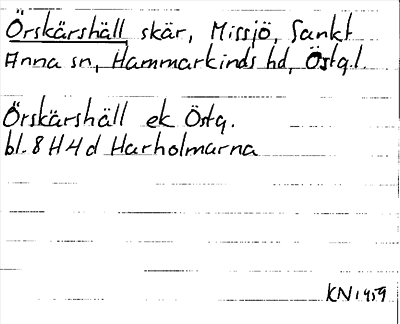 Örskärshäll skär, Missjö, Sankt
Anna sn, Hammarkinds hd, Östgl.
Örskärshäll ek Östg.
bl. 8 H 4 d Harholmarna
KN 1959